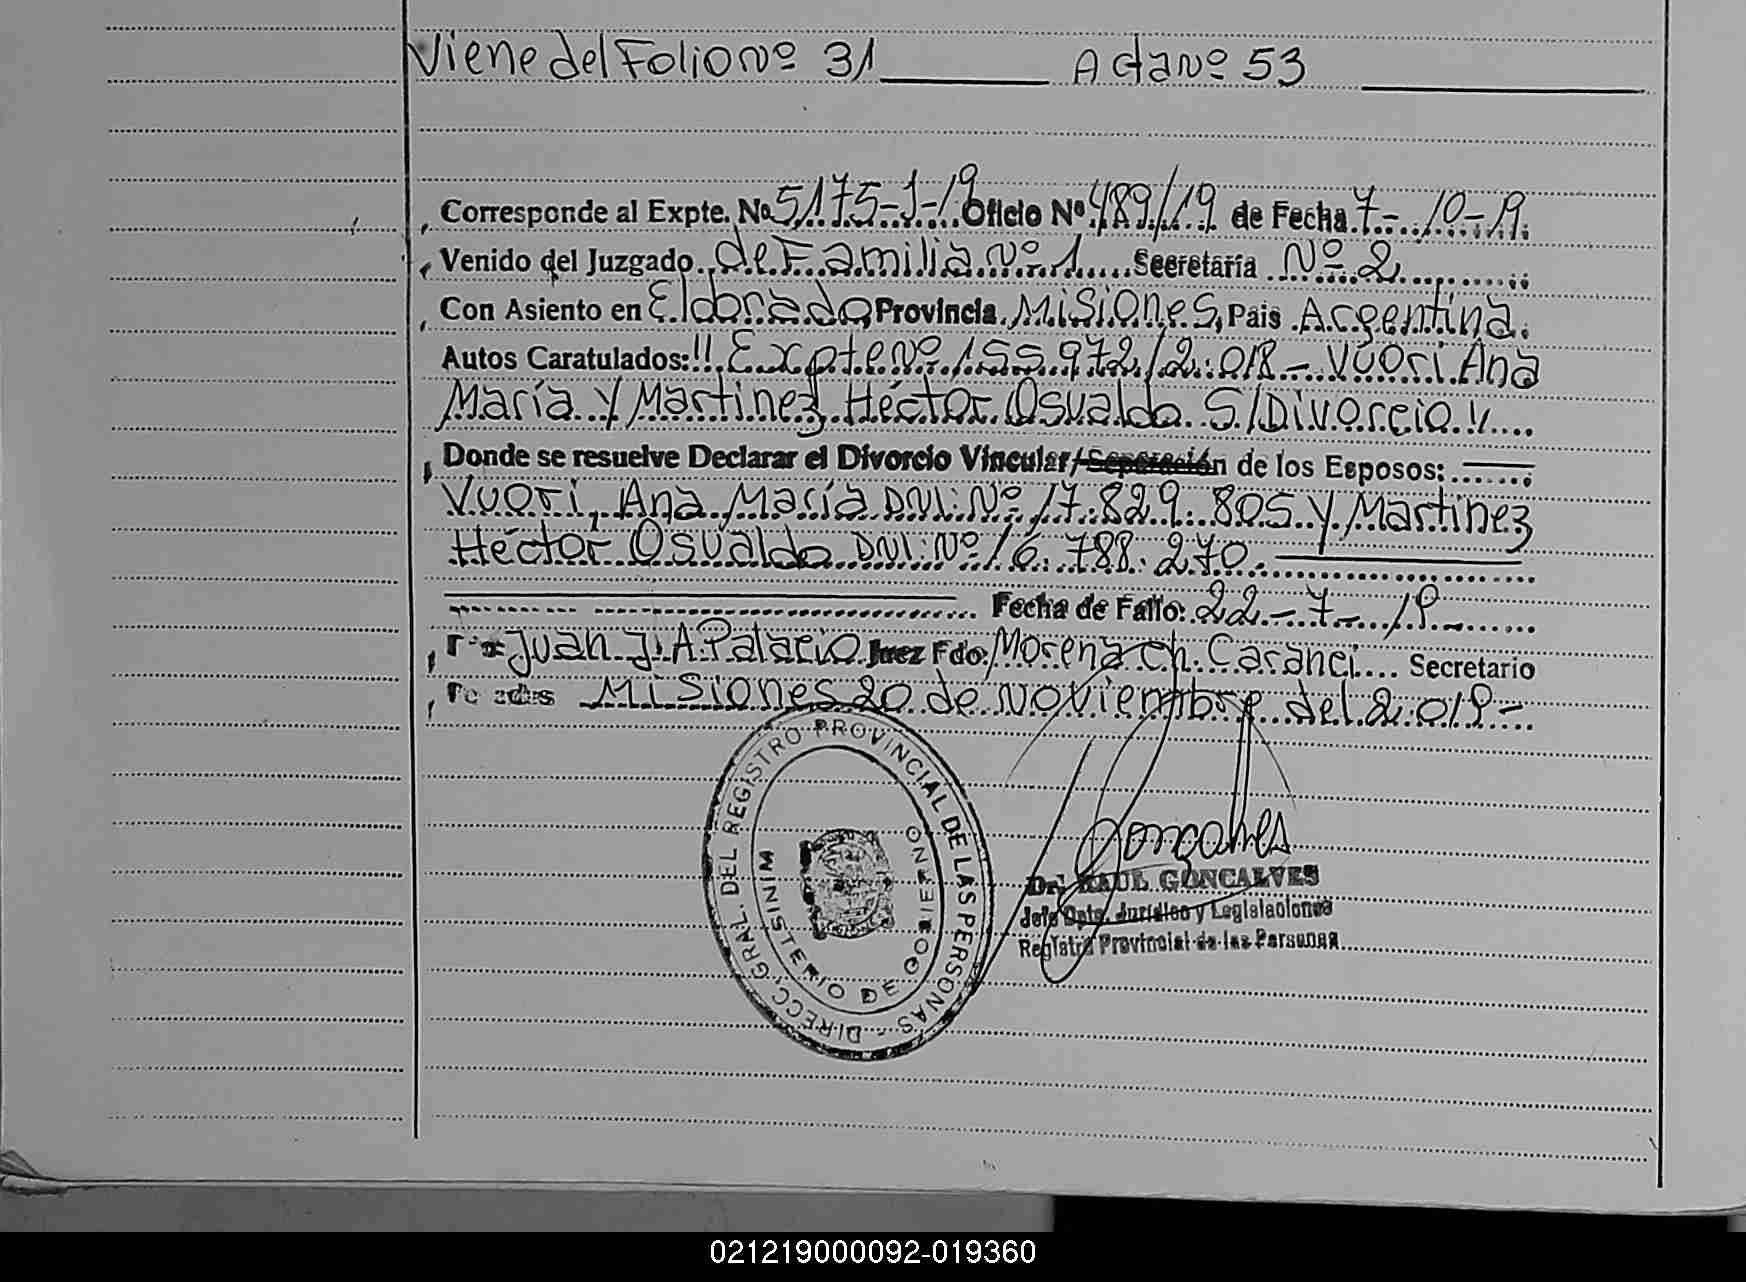 Viene del Folio Nº 31 Acta Nº 53
Corresponde al Expte. Nº 5175-J-19 Oficio Nº 489/19 de Fecha 7-10-19.
Venido del Juzgado de Familia Nº 1 Secretaría Nº 2
Con Asiento en Eldorado, Provincia Misiones, Pais Argentina.
Autos Caratulados: "Expte Nº 155.972/2.018 - Vuori Ana
María y Martinez Héctor Osvaldo S/Divorcio"
Donde se resuelve Declarar el Divorcio Vincular/Separación de los Esposos:
Vuori, Ana María DNI: Nº 17.829.805 y Martinez
Héctor Osvaldo DNI: Nº 16.788.270.
Fecha de Fallo: 22-7-19
Juan J. A. Palacio Juez Fdo: Morena Ch. Caranci Secretario
Misiones 20 de Noviembre del 2.019-
DIRECC. GRAL. DEL REGISTRO PROVINCIAL DE LAS PERSONAS
MINISTERIO DE GOBIERNO
Goncalves
Dr. RAUL GONCALVES
Jefe Dpto. Jurídico y Legislaciones
Registro Provincial de las Personas
021219000092-019360